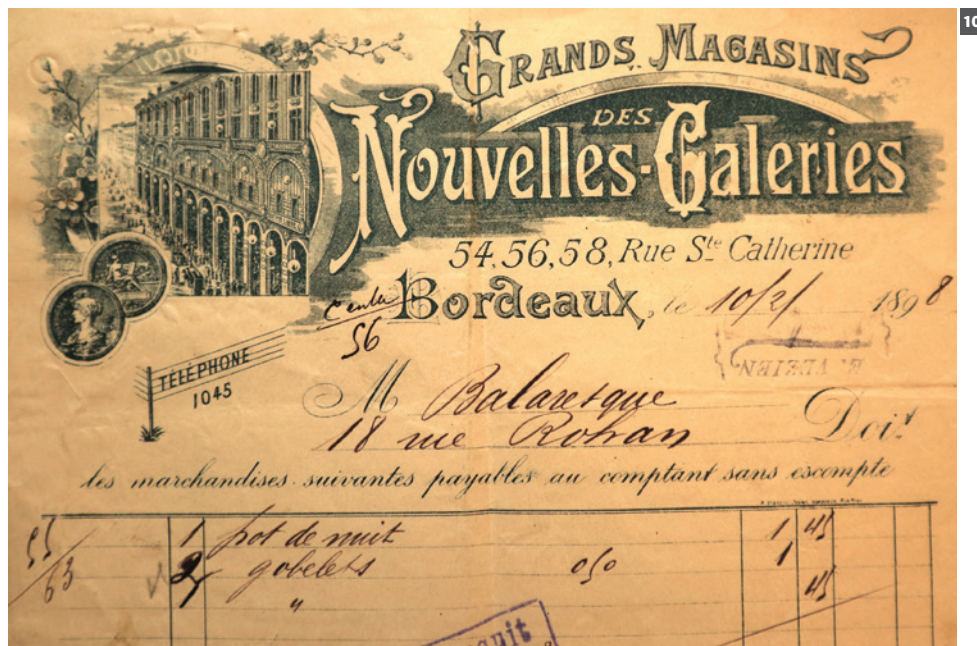 10
GRANDS MAGASINS
DES
NOUVELLES-GALERIES
54, 56, 58, Rue Ste Catherine
Bordeaux, le 10/2/ 1898
56
E. VEZIEN
TÉLÉPHONE
1045
M Balaresque
18 rue Rohan Doit
les marchandises suivantes payables au comptant sans escompte
55/63
1 pot de nuit 1 45
2 gobelets 0 50 1
1 " 45